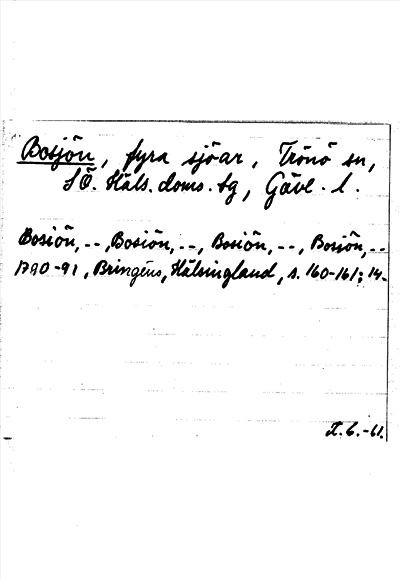 Bosjön, fyra sjöar, Trönö sn,
SÖ. Häls. doms. tg, Gävl. l.
Bosiön, --, Bosiön, --, Bosiön, --, Bosiön, --
1790-91, Bringéus, Hälsingland, s. 160-161; 14.
-61.